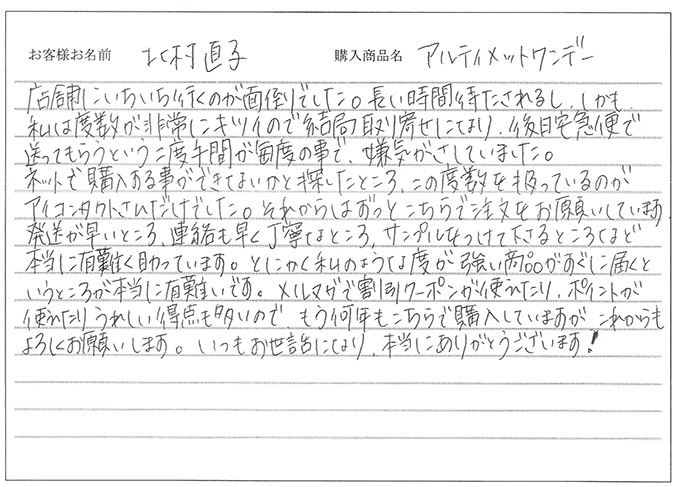 お客様お名前 北村直子 購入商品名 アルティメットワンデー
店舗にいちいち行くのが面倒でした。長い時間待たされるし、しかも
私は度数が非常にキツイので結局取り寄せになり、後日宅急便で
送ってもらうという二度手間が毎度の事で、嫌気がさしていました。
ネットで購入する事ができないかと探したところ、この度数を扱っているのが
アイコンタクトさんだけでした。それからはずっとこちらで注文をお願いしています
発送が早いところ、連絡も早く丁寧なところ、サンプルをつけて下さるところなど
本当に有難く助っています。とにかく私のような度が強い商品がすぐに届くと
いうところが本当に有難いです。メルマガで割引クーポンが使えたり、ポイントが
使えたりうれしい得点も多いので もう何年もこちらで購入していますが これからも
よろしくお願いします。いつもお世話になり、本当にありがとうございます!